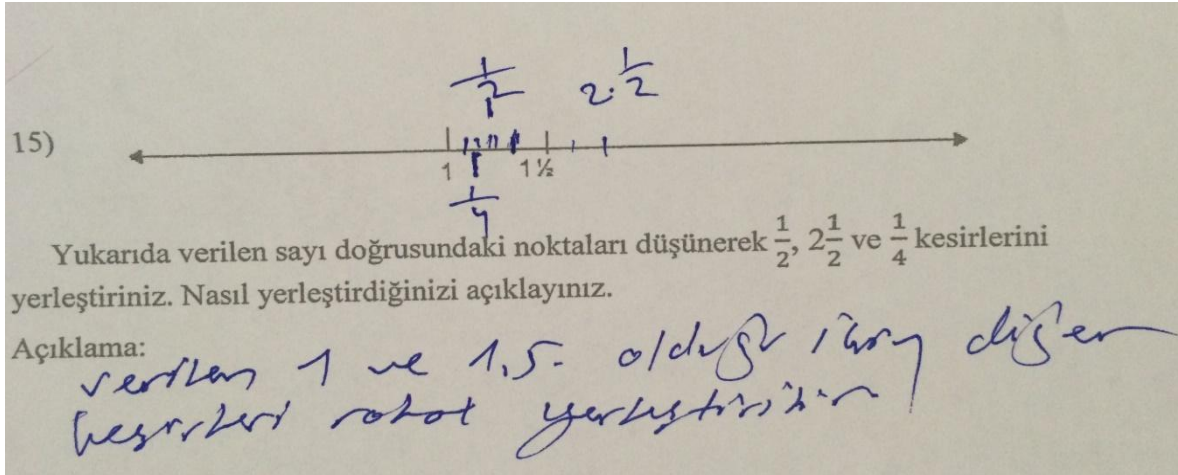 1/2 2.1/2
15)
1 1½
1/4
Yukarıda verilen sayı doğrusundaki noktaları düşünerek 1/2, 2 1/2 ve 1/4 kesirlerini
yerleştiriniz. Nasıl yerleştirdiğinizi açıklayınız.
Açıklama:
verilen 1 ve 1,5. olduğu için diğer
kesirleri rahat yerleştiririm